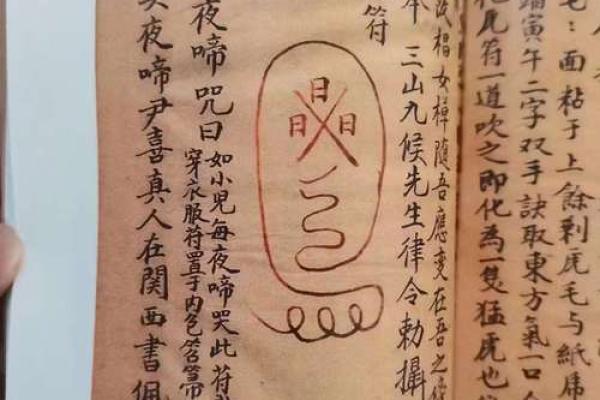 毛：面粘于上餘剩虎毛与紙
寅午二字双手訣取東方氣一口
化虎符一道吹之即化為一隻猛虎也
女樟随吾應变在吾之
本 三山九候先生律令勅攝
符
日
日 日
夜啼咒曰
如小児每夜啼哭此符
穿衣服符置于内
夜啼尹喜真人在関西書佩